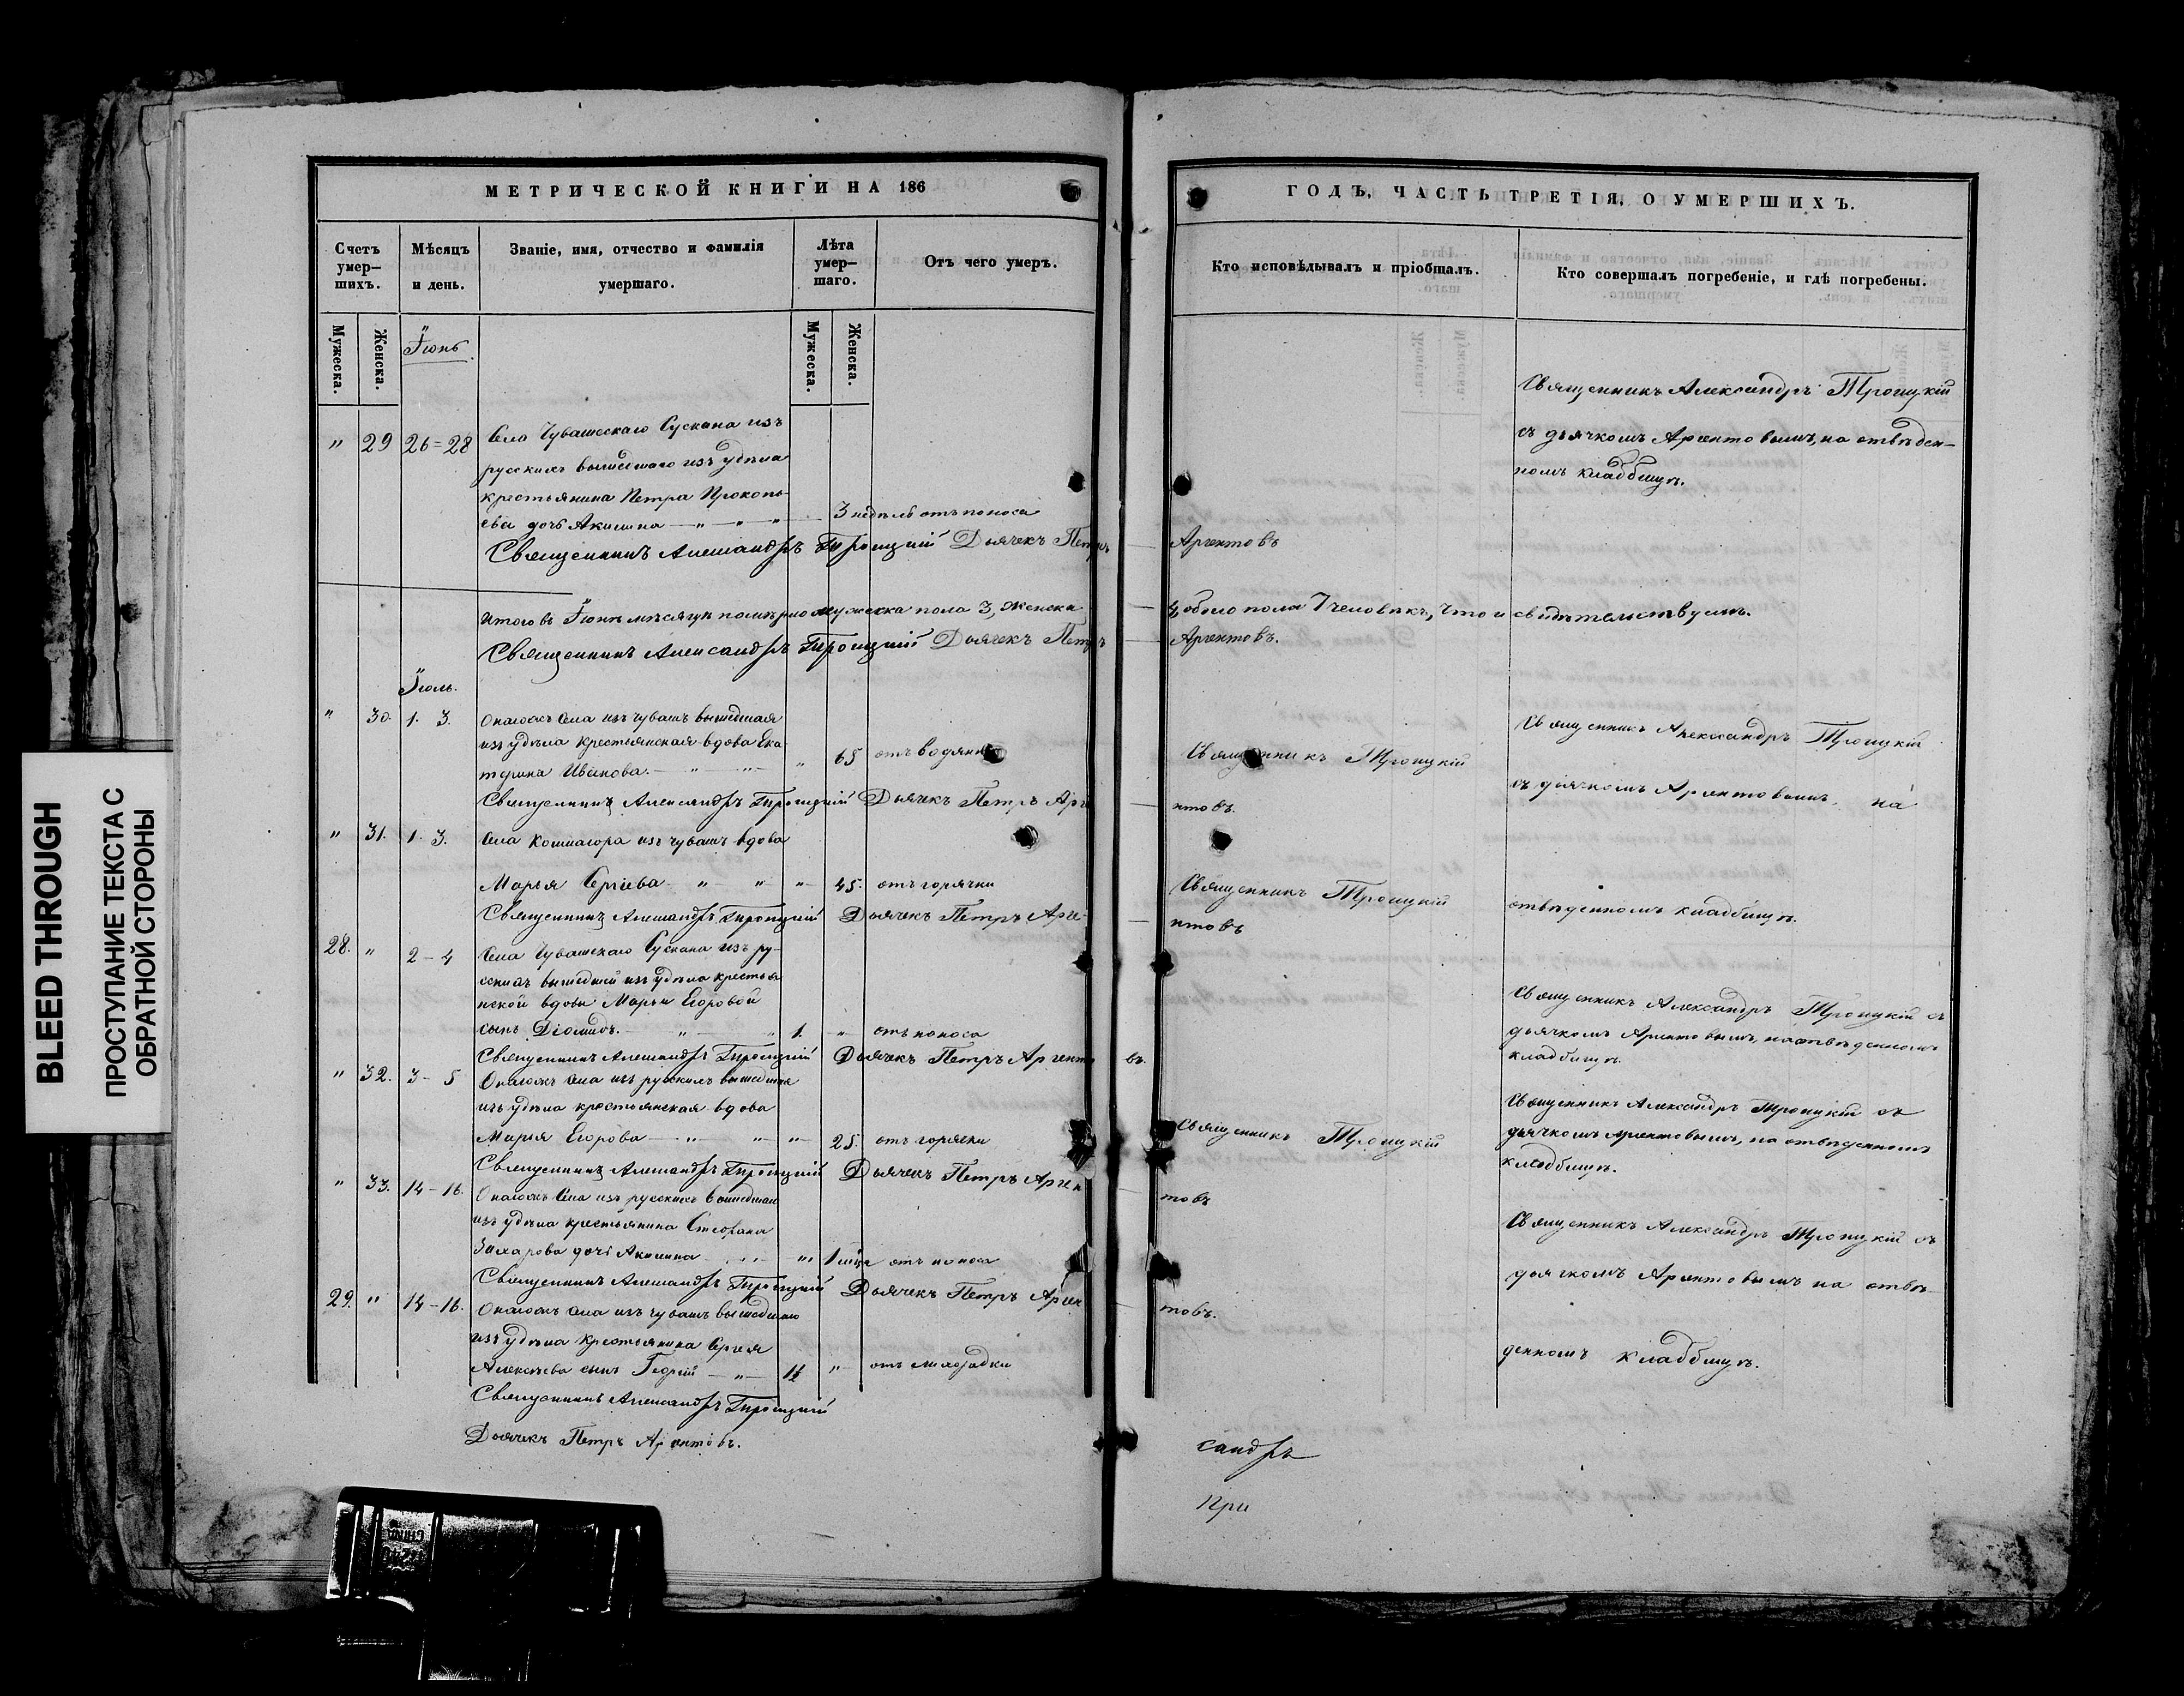 BLEED THROUGH
ПРОСТУПАНИЕ ТЕКСТА С
ОБРАТНОЙ СТОРОНЫ
МЕТРИЧЕСКОЙ КНИГИ НА 186
Счетъ умер–шихъ.
Мѣсяцъ и день.
Званіе, имя, отчество и фамилія умершаго.
Лѣта умер–шаго.
Отъ чего умеръ.
Мужеска.
Женска.
Мужеска.
Женска.
Іюнь
" 29 26=28 Села Чувашскаго Сускана изъ
русскихъ вышедшаго изъ удѣла
крестьянина Петра Прокопь-
ева дочь Акилина — " — " — " — 3 недѣль отъ поноса
Священникъ Александръ Троицкій Дьячекъ Петръ
Итого въ Іюнѣ мѣсяцѣ померло мужеска пола 3, женска
Священникъ Александръ Троицкій Дьячекъ Петръ
Іюль.
" 30. 1. 3. Онагожъ села изъ чувашъ вышедшая
изъ удѣла крестьянская вдова Ека-
терина Иванова. — " — " — " 65 отъ водянки
Священникъ Александръ Троицкій Дьячекъ Петръ Арге
" 31. 1. 3. Села Кошмагора изъ чувашъ вдова
Марья Сергіева — " — " — " — 45. отъ горячки
Священникъ Александръ Троицкій Дьячекъ Петръ Арге-
28. " 2–4 Села Чувашскаго Сускана изъ ру-
сскихъ вышедшей изъ удѣла крестья
нской вдовы Марьи Егоровой
сынъ Діомидъ. — " — " 1. " отъ поноса
Священникъ Александръ Троицкій Дьячекъ Петръ Аргенто
" 32. 3–5 Онагожъ села изъ русскихъ вышедшая
изъ удѣла крестьянская вдова
Марья Егорова — " — " — " — 25. отъ горячки
Священникъ Александръ Троицкій Дьячекъ Петръ Арген
" 33. 14–16. Онагожъ села изъ русскихъ вышедшаго
изъ удѣла крестьянина Стефана
Захарова дочь Акилина " " отъ поноса
Священникъ Александръ Троицкій Дьячекъ Петръ Арген
29. " 14–16. Онагожъ села изъ чувашъ вышедшаго
изъ удѣла крестьянина Сергея
Алексѣева сынъ — " — " отъ лихорадки
Священникъ Александръ Троицкій
Дьячекъ Петръ Аргентовъ.
ГОДЪ, ЧАСТЬ ТРЕТІЯ, О УМЕРШИХЪ.
Кто исповѣдывалъ и пріобщалъ.
Кто совершалъ погребеніе, и гдѣ погребены.
Священникъ Александръ Троицкій
съ дьячкомъ Аргентовымъ, на отвѣден-
номъ кладбищѣ.
Аргентовъ
4, обоего пола 7 человѣкъ, что и свидѣтельствуемъ.
Аргентовъ.
Священникъ Александръ Троицкій
Священникъ Троицкій
съ дьячкомъ Аргентовымъ, на
нтовъ.
Священникъ Троицкій
отвѣденномъ кладбищѣ.
нтовъ
Священникъ Александръ Троицкій съ
дьячкомъ Аргентовымъ, на отвѣденномъ
кладбищѣ.
въ.
Священникъ Александръ Троицкій съ
Священникъ Троицкій
дьячкомъ Аргентовымъ, на отвѣденномъ
кладбищѣ.
товъ
Священникъ Александръ Троицкій съ
дьячкомъ Аргентовымъ на отвѣ-
товъ.
денномъ кладбищѣ.
сандръ
При